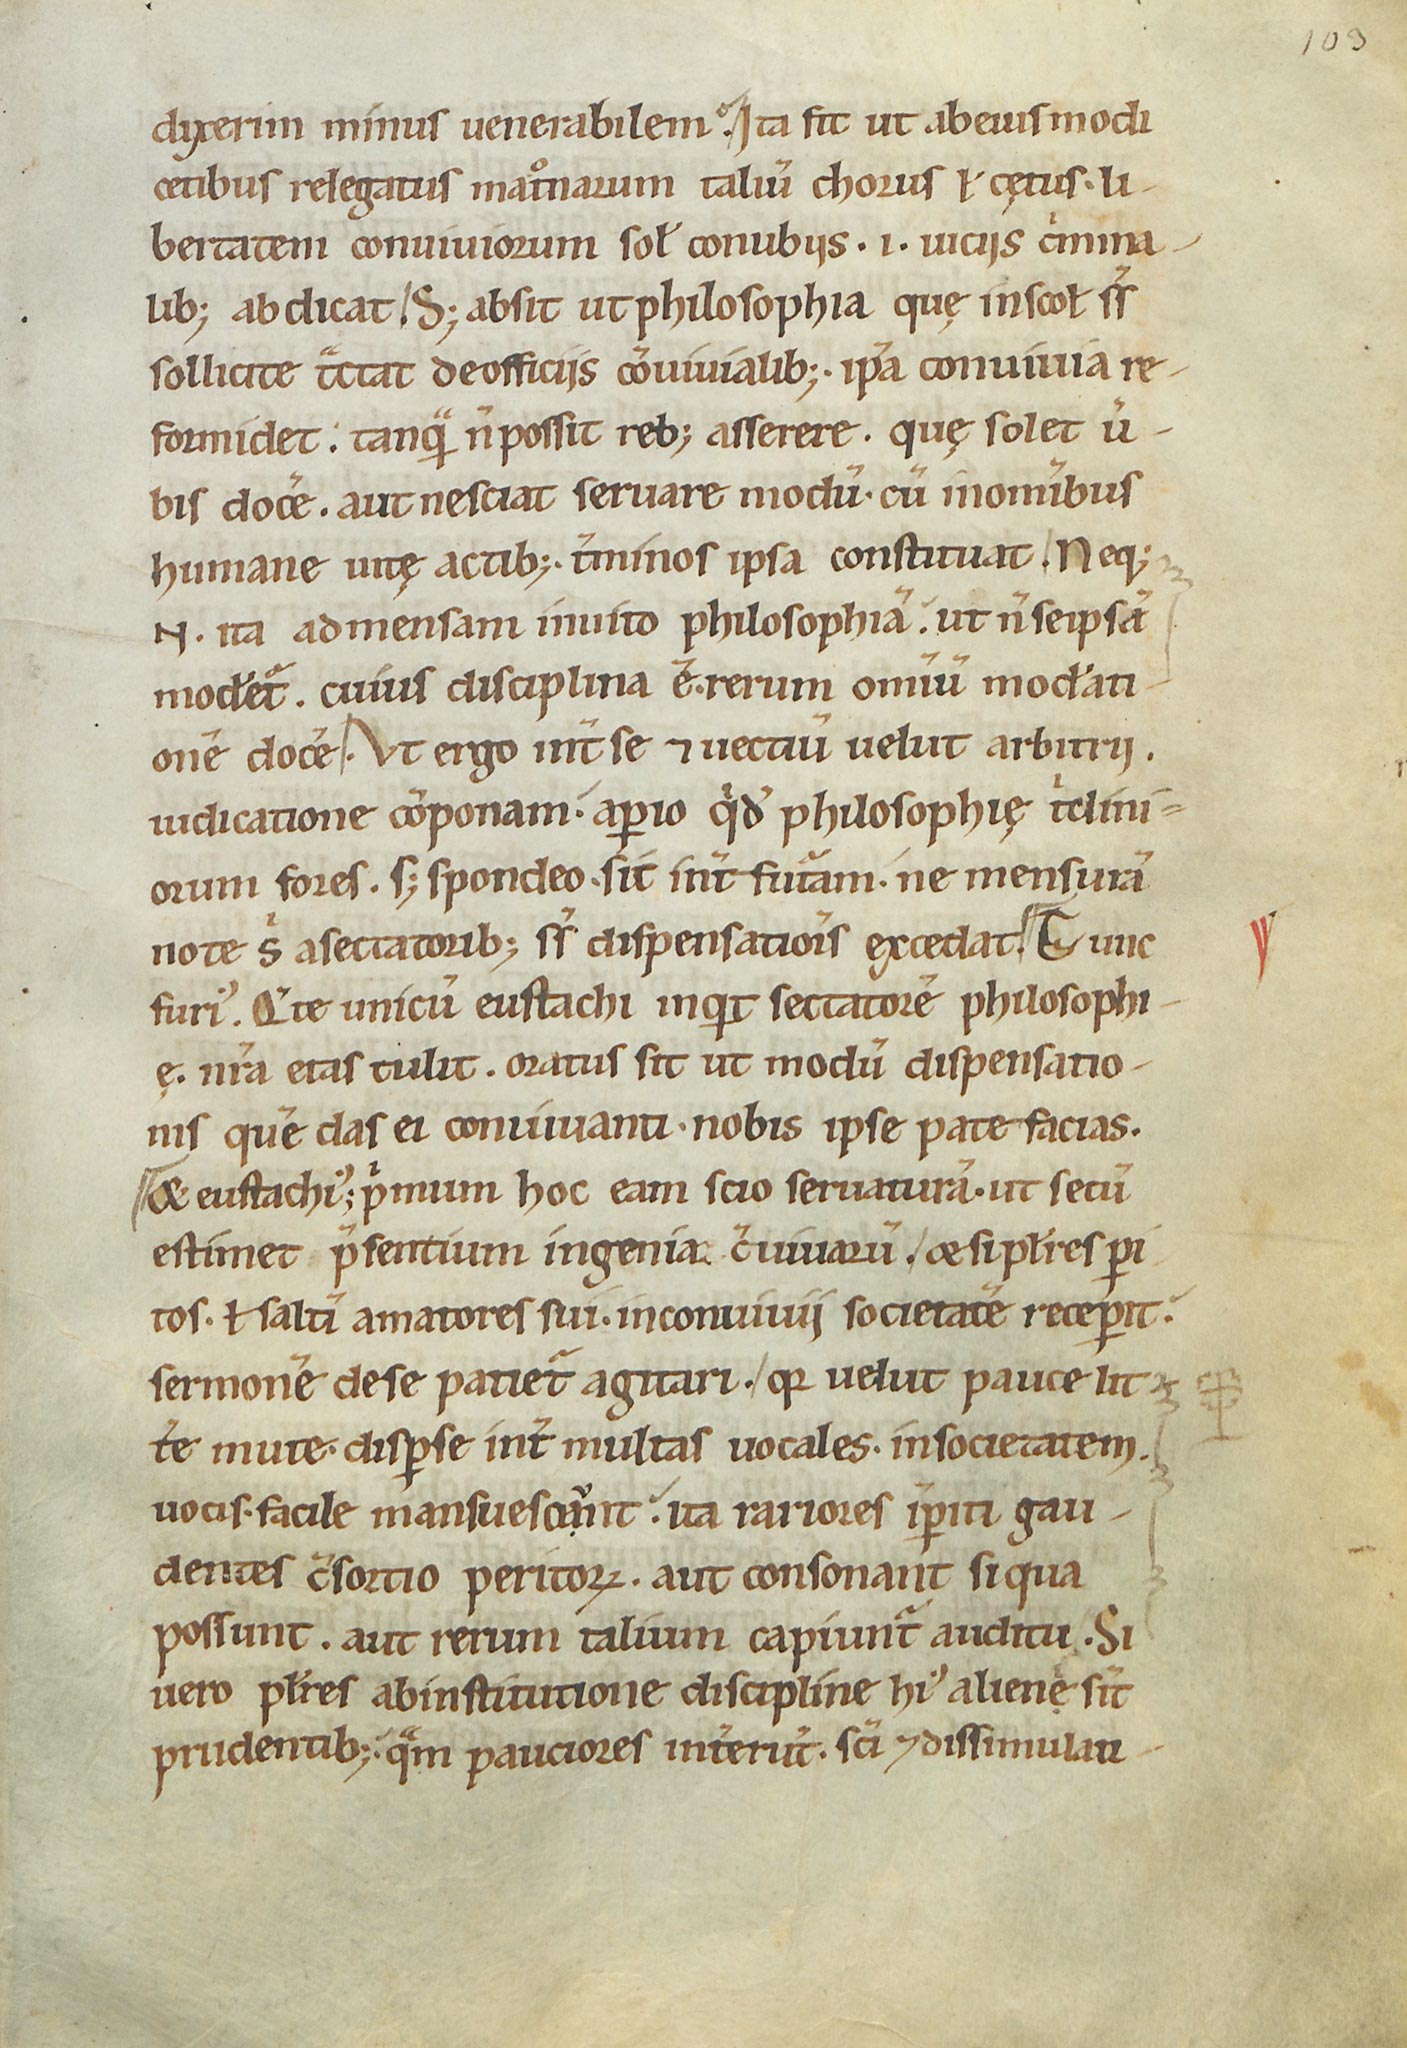 103
dixerim minus uenerabilem. Ita fit ut abeiusmodi
cetibus relegatus mat͛onarum taliū chorus ł cętus. li-
bertatem conuiuiorum soł conubijs. i. uicijs cͥmina-
lib; abdicat. S; absit ut philosophia quę inscoł sr̄
sollicite tͣctat deofficijs cōuiuialib;. ip̄a conuiuia re-
formidet. tanqͣ n̄ possit reb; asserere. quę solet ū-
bis docē. aut nesciat seruare modū. cū inomībus
humane uitę actib;. t̄minos ipsa constituat. Neq;
N. ita admensam inuito philosophiā. ut n̄ seipsā
modetͣ. cuius disciplina ē. rerum omīū modati-
onē docē. Vt ergo int̄ se ⁊ uectiū uelut arbitrij.
iudicatione cōponam. aꝑio qͥđ philosophię tͥclini-
orum fores. s; spondeo. sic int̄ futͣam. ne mensurā
note sͥ asectatorib; sr̄ dispensatiōis excedat. Tunc
furiꝰ. Qͥ te unicū eustachi inqͥt sectatorē philosophi-
ę. nr̄a etas tulit. oratus sit ut modū dispensatio-
nis quē das ei conuiuanti. nobis ipse pate facias.
& eustachiꝰ; pͥmum hoc eam scio seruaturā. ut secū
estimet p̄sentium ingenia c̄uiuarū. & si pł̄res ꝑi
tos. ł saltī amatores sui. inconuiuij societatē receꝑit.
sermonē dese patietͣ agitari. qꝛ uelut pauce lit
t̄e mute. disꝑse int̄ multas uocales. insocietatem.
uocis. facile mansuescūnt. ita rariores īꝑiti gau-
dentes c̄sortio peritoꝝ. aut consonant siqua
possunt. aut rerum talium capiuntͣ auditu. Si
uero pł̄res abinstitutione discipline hiꝰ alienę sīt
prudentib;. qͣm pauciores int̄erūt. scī ⁊dissimulati-